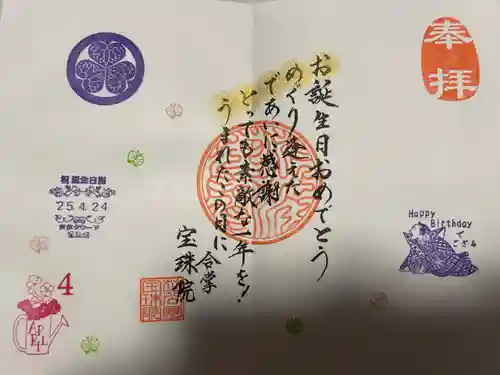 奉拝
お誕生日おめでとう
めぐり逢えた
であいに感謝
とっても素敵な一年を!
うまれたこの日に
合掌
宝珠院
祝誕生日印
'25.4.24
東京タワー下
Happy
Birthday
で
ござる
4
APRIL